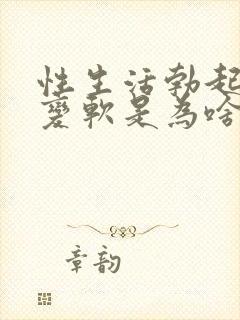 性生活勃起
变軟是為啥
章韵